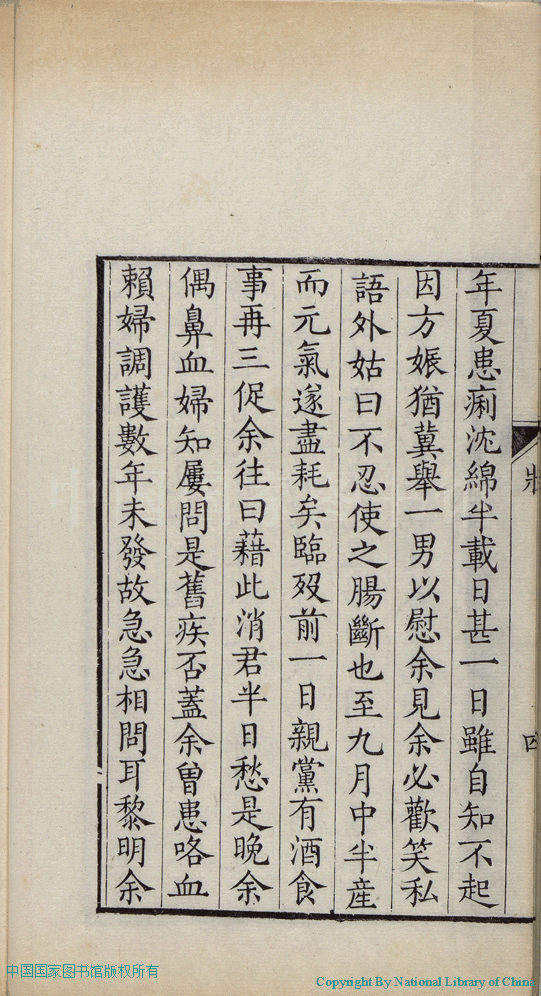 年夏患痢沈綿半載日甚一日雖自知不起
因方娠猶冀舉一男以慰余見余必歡笑私
語外姑曰不忍使之腸斷也至九月中半產
而元氣遂盡耗矣臨歿前一日親黨有酒食
事再三促余往曰藉此消君半日愁是晚余
偶鼻血婦知屢問是舊疾否蓋余曾患咯血
賴婦調護數年未發故急急相問耳黎明余
中国国家图书馆版权所有
Copyright By National Library of China